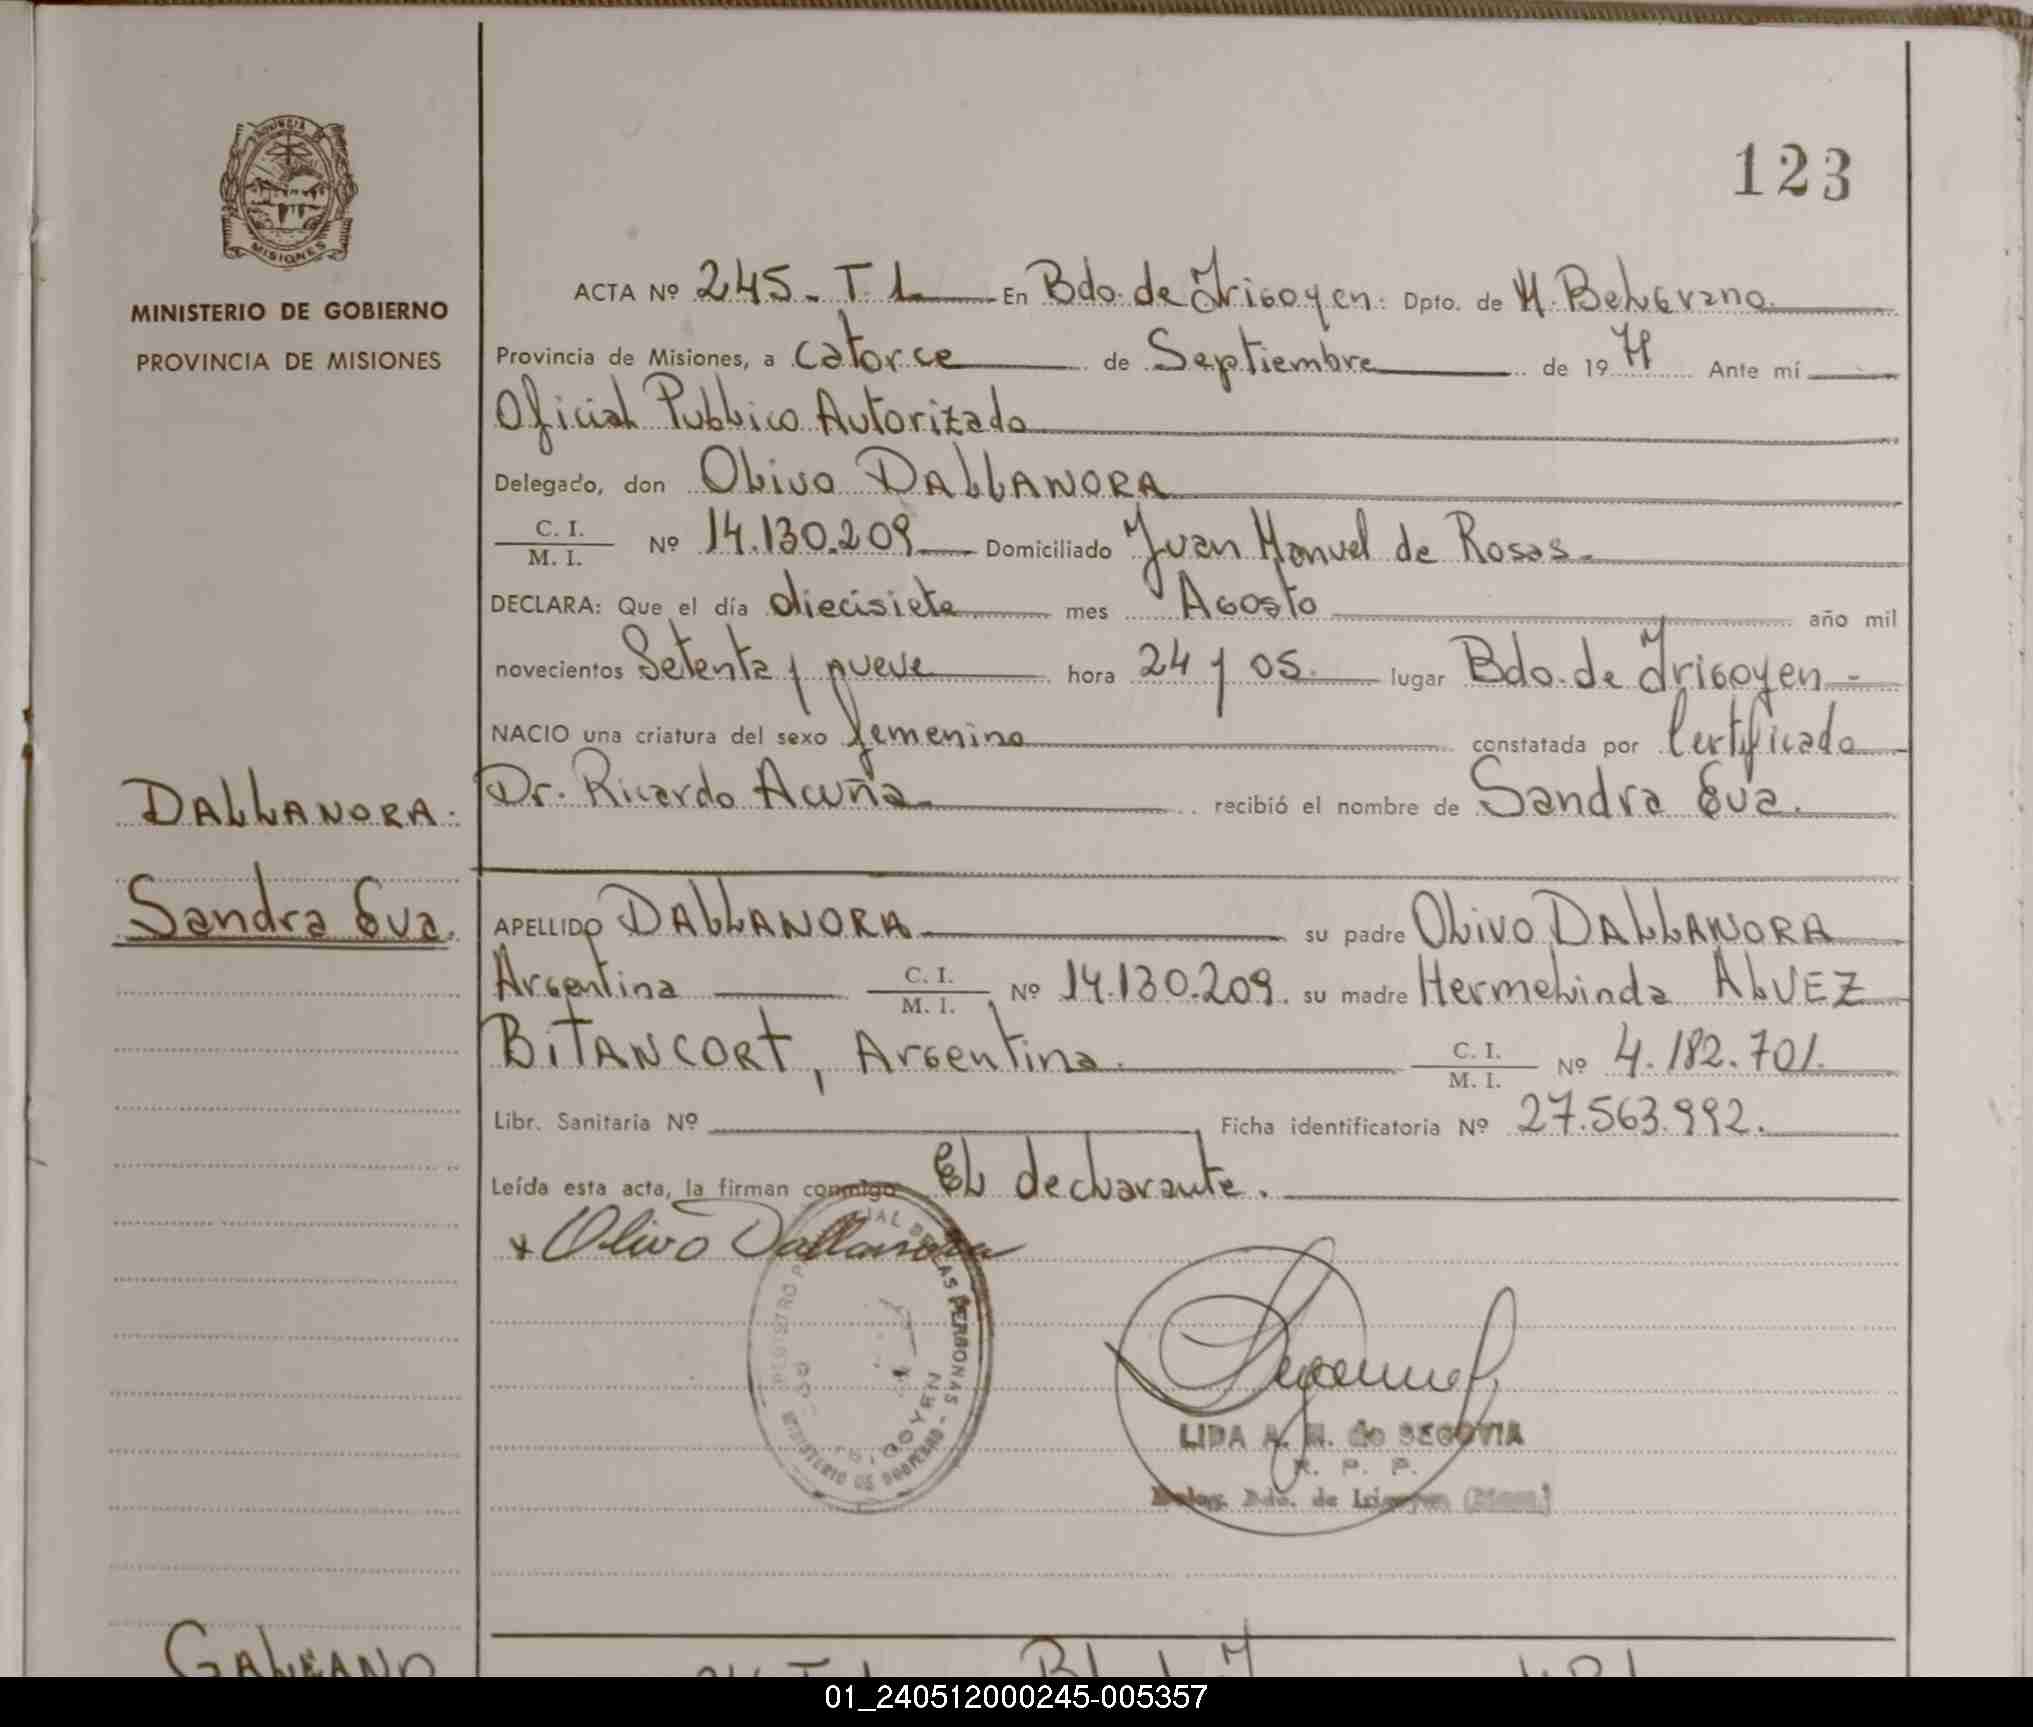 PROVINCIA DE
MISIONES
MINISTERIO DE GOBIERNO
PROVINCIA DE MISIONES
123
ACTA Nº 245. T 1. En Bdo. de Irigoyen. Dpto. de M. Belgrano.
Provincia de Misiones, a catorce de Septiembre de 19 79 Ante mí
Oficial Publico Autorizado
Delegado, don Olivo DALLANORA
C. I.
M. I. Nº 14.130.209 Domiciliado Juan Manuel de Rosas.
DECLARA: Que el día diecisiete mes Agosto año mil
novecientos Setenta y nueve hora 24 y 05. lugar Bdo. de Irigoyen -
NACIO una criatura del sexo femenino constatada por Certificado
Dr. Ricardo Acuña. recibió el nombre de Sandra Eva.
DALLANORA.
Sandra Eva.
APELLIDO DALLANORA su padre Olivo DALLANORA
Argentina C. I.
M. I. Nº 14.130.209. su madre Hermelinda ALVEZ
BITANCORT, Argentina. C. I.
M. I. Nº 4.182.701.
Libr. Sanitaria Nº Ficha identificatoria Nº 27.563.992.
Leída esta acta, la firman conmigo El declarante.
x Olivo Dallanora
DE LAS PERSONAS - MINISTERIO DE GOBIERNO
IRIGOYEN
LIDA A. M. de SEGOVIA
R. P. P.
Deleg. Bdo. de Irigoyen (Mnes.)
GALEANO
01_240512000245-005357